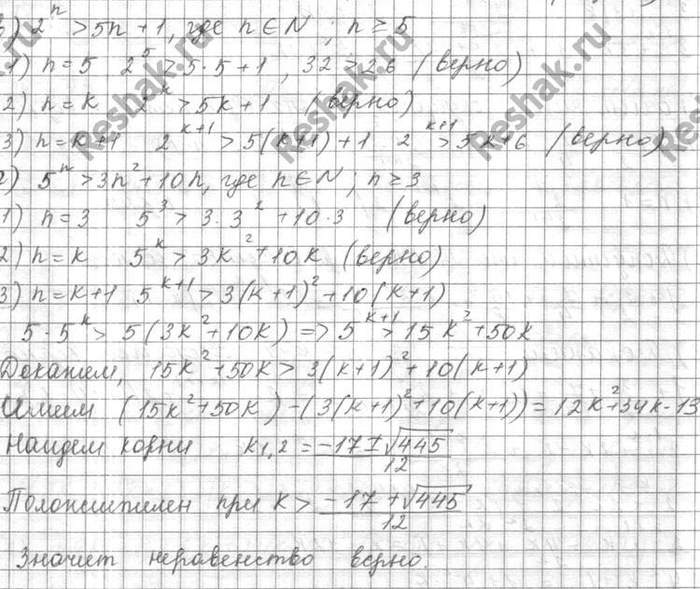 б) 2ⁿ > 5n + 1, где n ∈ N ; n ≥ 5
1) n = 5 2⁵ > 5 · 5 + 1 , 32 > 26 (верно)
2) n = k 2ᵏ > 5k + 1 (верно)
3) n = k+1 2ᵏ⁺¹ > 5(k+1) + 1 2ᵏ⁺¹ > 5k+6 (верно)
2) 5ⁿ > 3n² + 10n, где n ∈ N ; n ≥ 3
1) n = 3 5³ > 3 · 3² + 10 · 3 (верно)
2) n = k 5ᵏ > 3k² + 10k (верно)
3) n = k+1 5ᵏ⁺¹ > 3(k+1)² + 10(k+1)
5 · 5ᵏ > 5(3k² + 10k) => 5ᵏ⁺¹ > 15k² + 50k
Докажем, 15k² + 50k > 3(k+1)² + 10(k+1)
Имеем (15k² + 50k) - (3(k+1)² + 10(k+1)) = 12k² + 34k - 13
Найдем корни k₁,₂ = (-17 ± √445)/12
Положителен при k > (-17 + √445)/12
Значит неравенство верно.
Reshak.ru
Reshak.ru
Reshak.ru